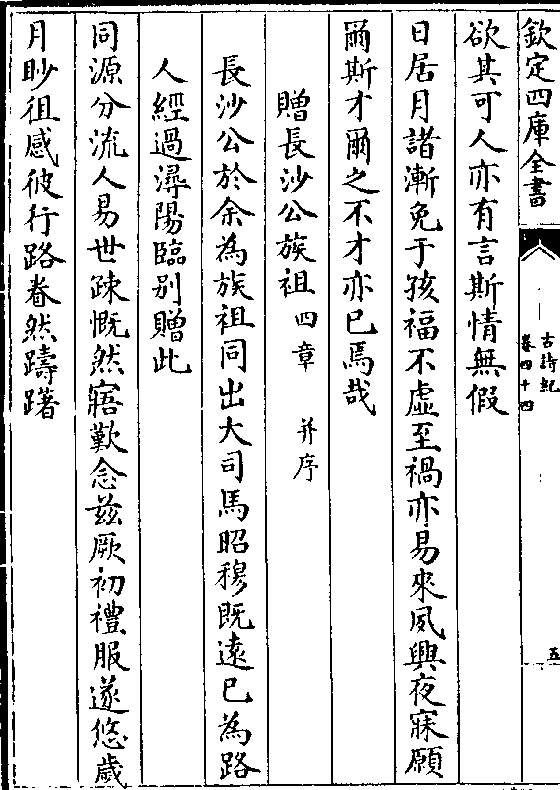 欽定四庫全書
古詩紀
卷四十四
五
欲其可人亦有言斯情無假
日居月諸漸免于孩福不虛至禍亦易來夙興夜寐願
爾斯才爾之不才亦已焉哉
贈長沙公族祖四章 并序
長沙公於余為族祖同出大司馬昭穆既遠已為路
人經過潯陽臨别贈此
同源分流人易世疎慨然寤歎念兹厥初禮服遂悠歳
月眇徂感彼行路眷然躊躇